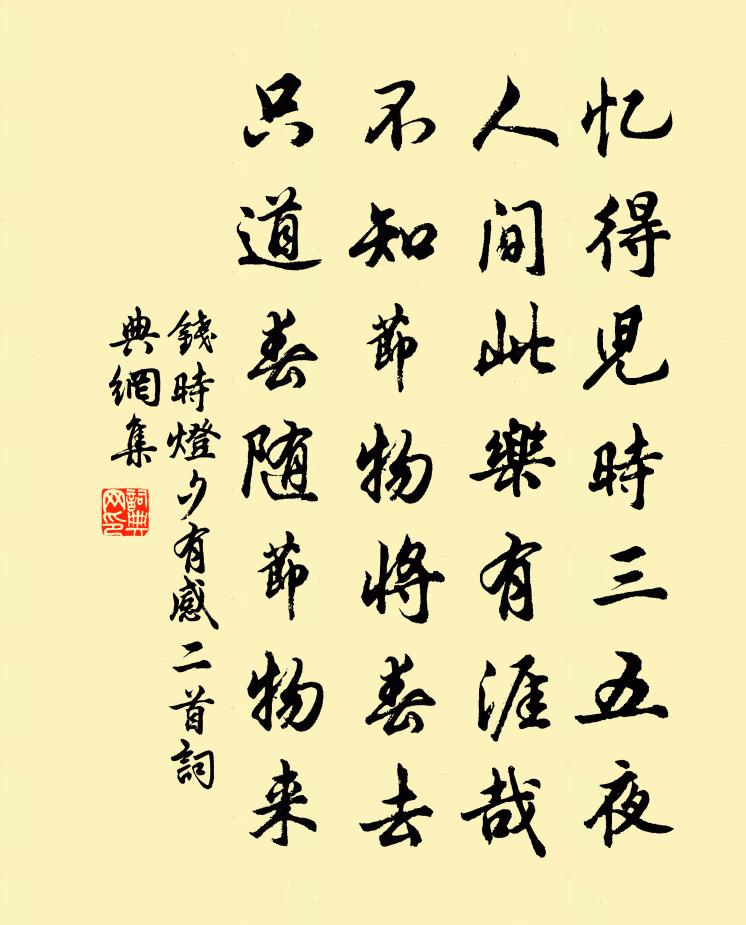 忆得児時三五夜
人间此樂有涯哉
不知節物将春去
只道春随節物来
錢時燈夕有感二首詞
典網集
詞典
网印